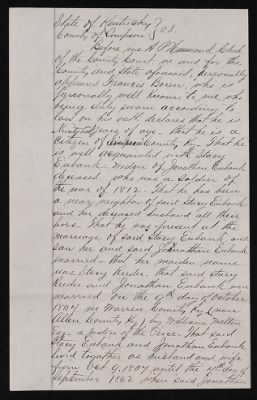 State of Kentucky
County of Simpson } SS.
Before me A P Hammond Clerk
of the County Court in and for the
County and State aforesaid, personally
appeared Francis Boren who is
personally well known to me, who
being duly sworn according to
law on his oath declares that he is
years of age - that he is a
Citizen of Simpson County Ky. That he
is well acquainted with Stacy
Eubank - Widow of Jonathan Eubank
deceased who was a Soldier of
the war of 1812. That he has been
a near neighbor of said Stacy Eubank
and her deceased husband all their
lives. That he was present at the
marriage of said Stacy Eubank and
saw her and said Jonathan Eubank
married - that her maiden name
was Stacy Reeder. that said Stacy
Reeder and Jonathan Eubank were
married on the 9th day of October
1807 in Warren County Ky (now
Allen County Ky) by William Melton
Esq a Justice of the Peace. That said
Stacy Eubank and Jonathan Eubank
lived together as husband and wife
from Oct 9, 1807 until the day of
September 1862 when said Jonathan